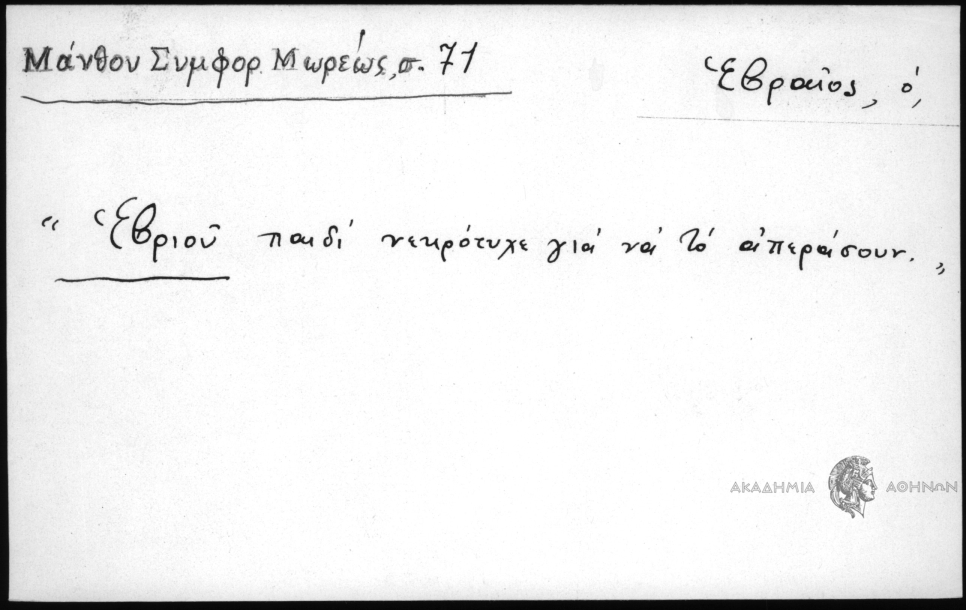 Μάνθου Συμφορ Μωρέως, σ. 71
Ἑβραῖος, ὁ,
“ Ἑβριοῦ παιδὶ νεκρότυχε γιὰ νὰ τὸ ἀπεράσουν. „
ΑΚΑΔΗΜΙΑ ΑΘΗΝΩΝ